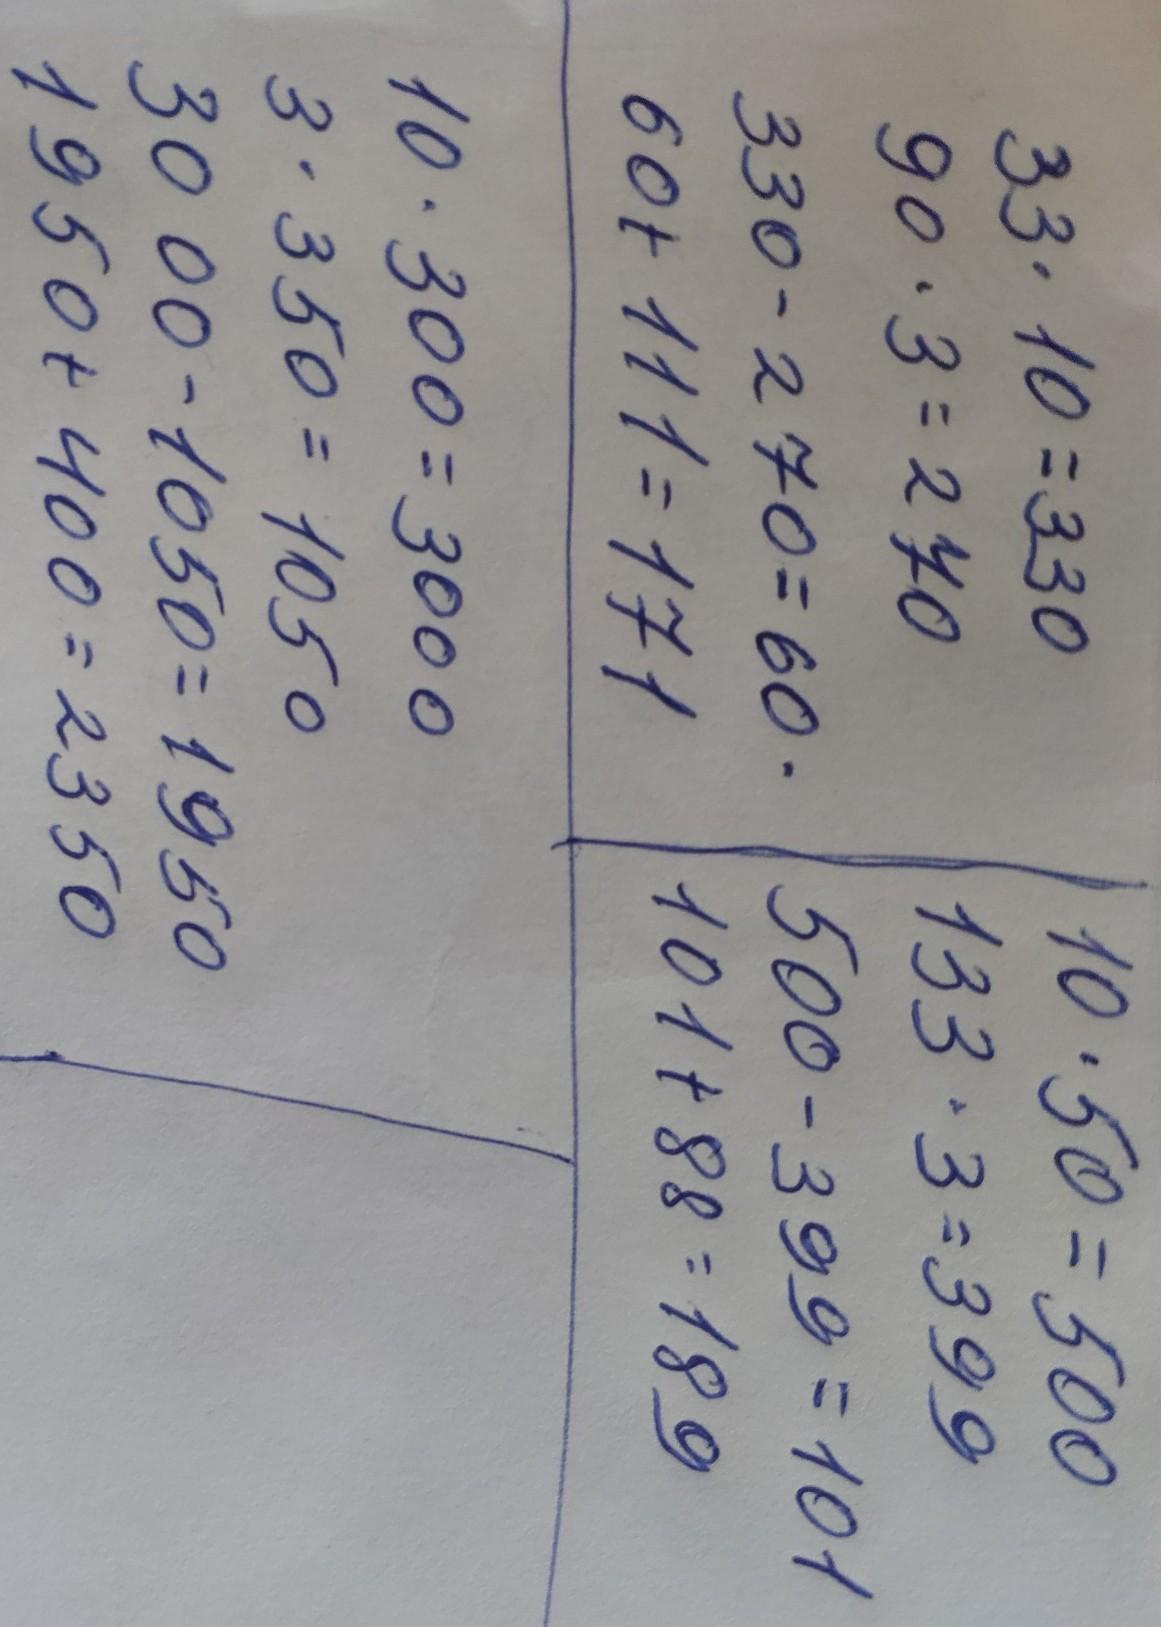 33·10=330
90·3=270
330-270=60.
60+111=171
10·50=500
133·3=399
500-399=101
101+88=189
10·300=3000
3·350=1050
3000-1050=1950
1950+400=2350